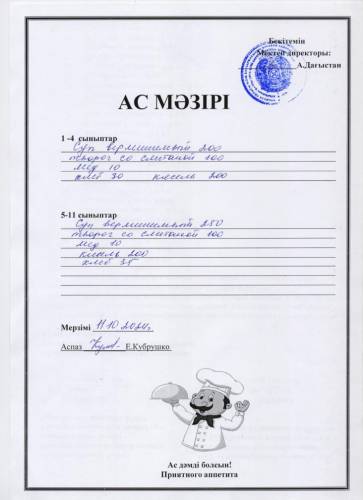 Бекітемін
Мектеп директоры:
А.Дағыстан
АС МӘЗІРІ
1 -4 сыныптар
Суп вермишелевый 200
творог со сметаной 100
мёд 10
хлеб 30 кисель 200
5-11 сыныптар
Суп вермишелевый 250
творог со сметаной 100
мёд 10
кисель 200
хлеб 35
Мерзімі 11.10.2024г.
Аспаз Е.Кубрушко
Ас дәмді болсын!
Приятного аппетита